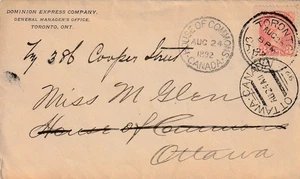 DOMINION EXPRESS COMPANY,
GENERAL MANAGER'S OFFICE.
TORONTO, ONT.
HOUSE OF COMMONS
AUG 24
1892
CANADA
TORONTO
AUG
Try 386 Cooper Street
Miss M Glen
House of Commons
Ottawa
OTTAWA CANADA
AU 24